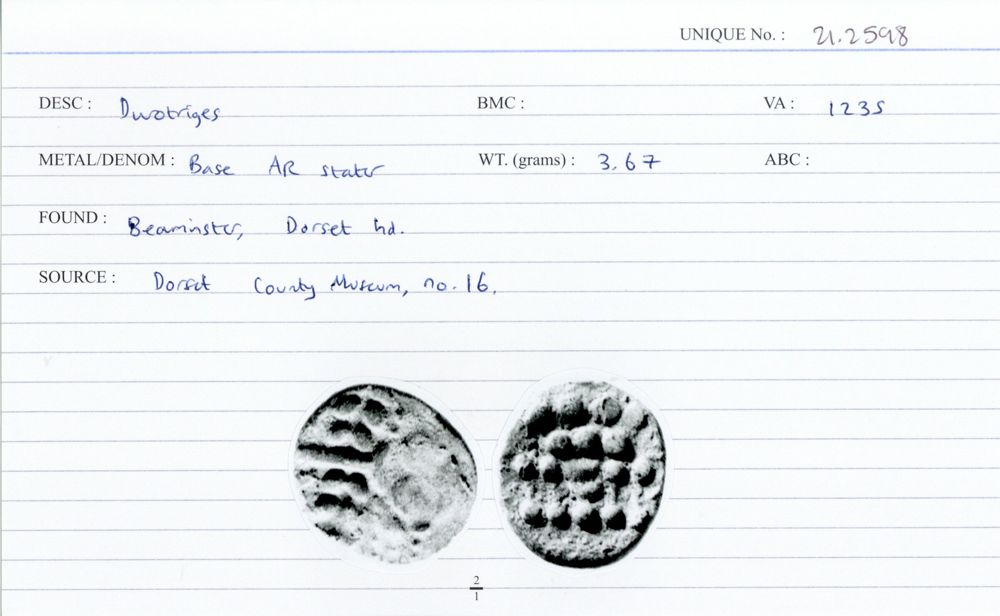 UNIQUE No. : 21.2598
DESC : Durotriges BMC : VA : 1235
METAL/DENOM : Base AR stater WT. (grams) : 3.67 ABC :
FOUND : Beaminster, Dorset hd.
SOURCE : Dorset County Museum, no. 16.
2
1